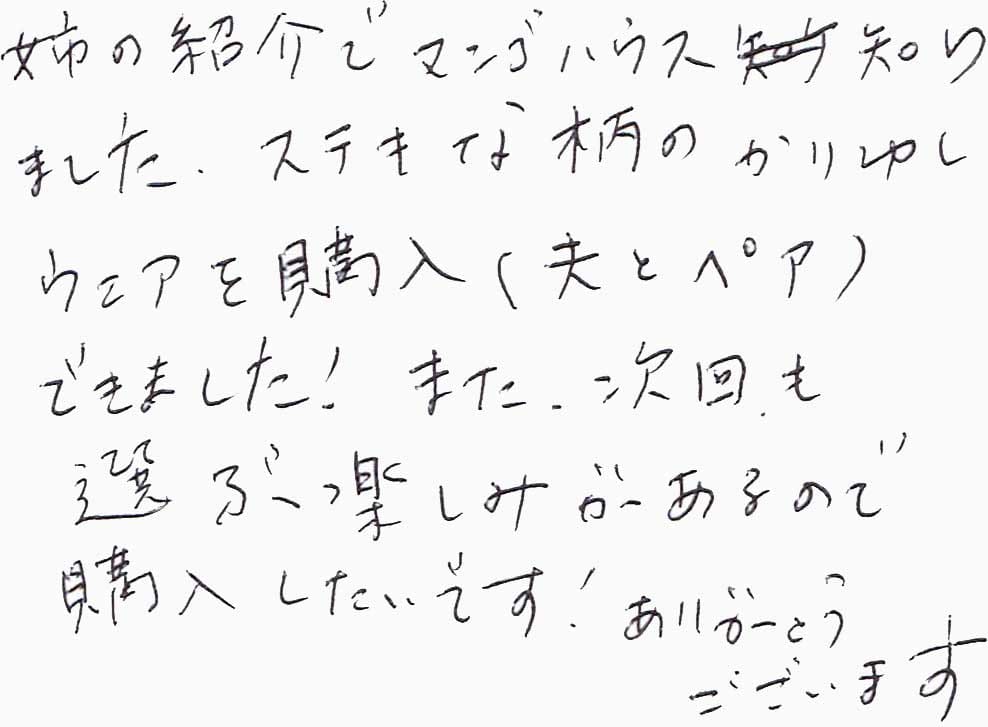 姉の紹介でマンゴハウス知り
ました．ステキな柄のかりゆし
ウェアを購入（夫とペア）
できました！また．次回も
選ぶ楽しみがあるので
購入したいです！ありがとう
ございます